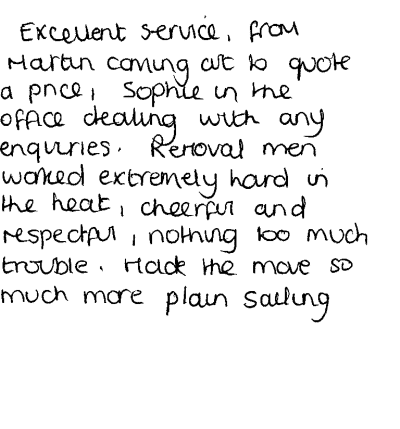 Excellent service, from
Martin coming out to quote
a price, Sophie in the
office dealing with any
enquiries. Removal men
worked extremely hard in
the heat, cheerful and
respectful, nothing too much
trouble. Made the move so
much more plain sailing